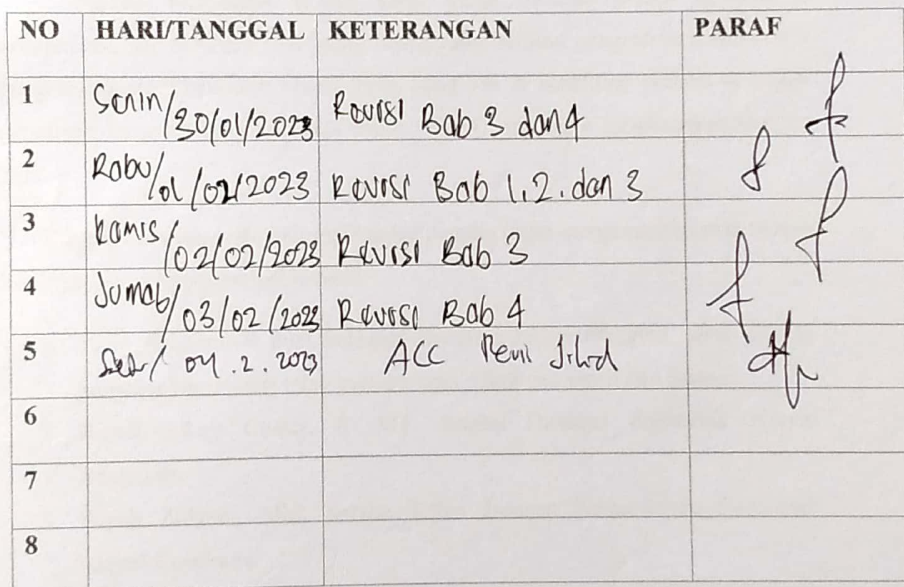 NO HARI/TANGGAL KETERANGAN PARAF
1 Senin/30/01/2023 Revisi Bab 3 dan 4
2 Rabu/01/02/2023 Revisi Bab 1.2. dan 3
3 Kamis/02/02/2023 Revisi Bab 3
4 Jumat/03/02/2023 Revisi Bab 4
5 04.2.2023 ACC
6
7
8